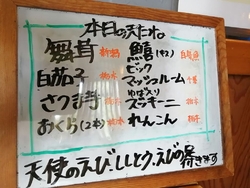 本日の天たね
舞茸 新潟
白茄子 栃木
さつま芋 栃木
おくら(2本)
鱚(キス)
ピック
マッシュルーム 千葉
ゆば入り
ズッキーニ 栃木
れんこん
天使のえび、ししとう、えびの 付きます